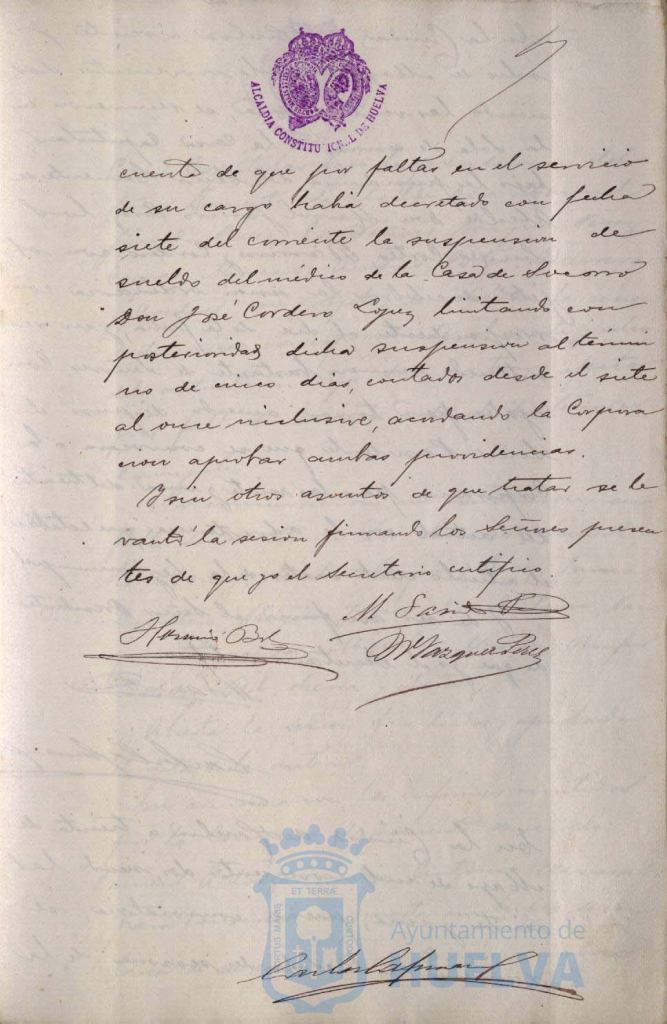 ALCALDIA CONSTITUCIONAL DE HUELVA
cuenta de que por faltas en el servicio
de su cargo habia decretado con fecha
siete del corriente la suspension de
sueldo del médico de la Casa de Socorro
Don José Cordero Lopez limitando con
posterioridad dicha suspension al termi
no de cinco dias, contados desde el siete
al once inclusive, acordando la Corpora
cion aprobar ambas providencias.
Y sin otros asuntos de que tratar se le
vantó la sesion firmando los Señores presen
tes de que yo el Secretario certifico.
M
Vazquez Perez
ET TERRÆ
PORTUS MARIS
CUSTODIA
Ayuntamiento de
HUELVA